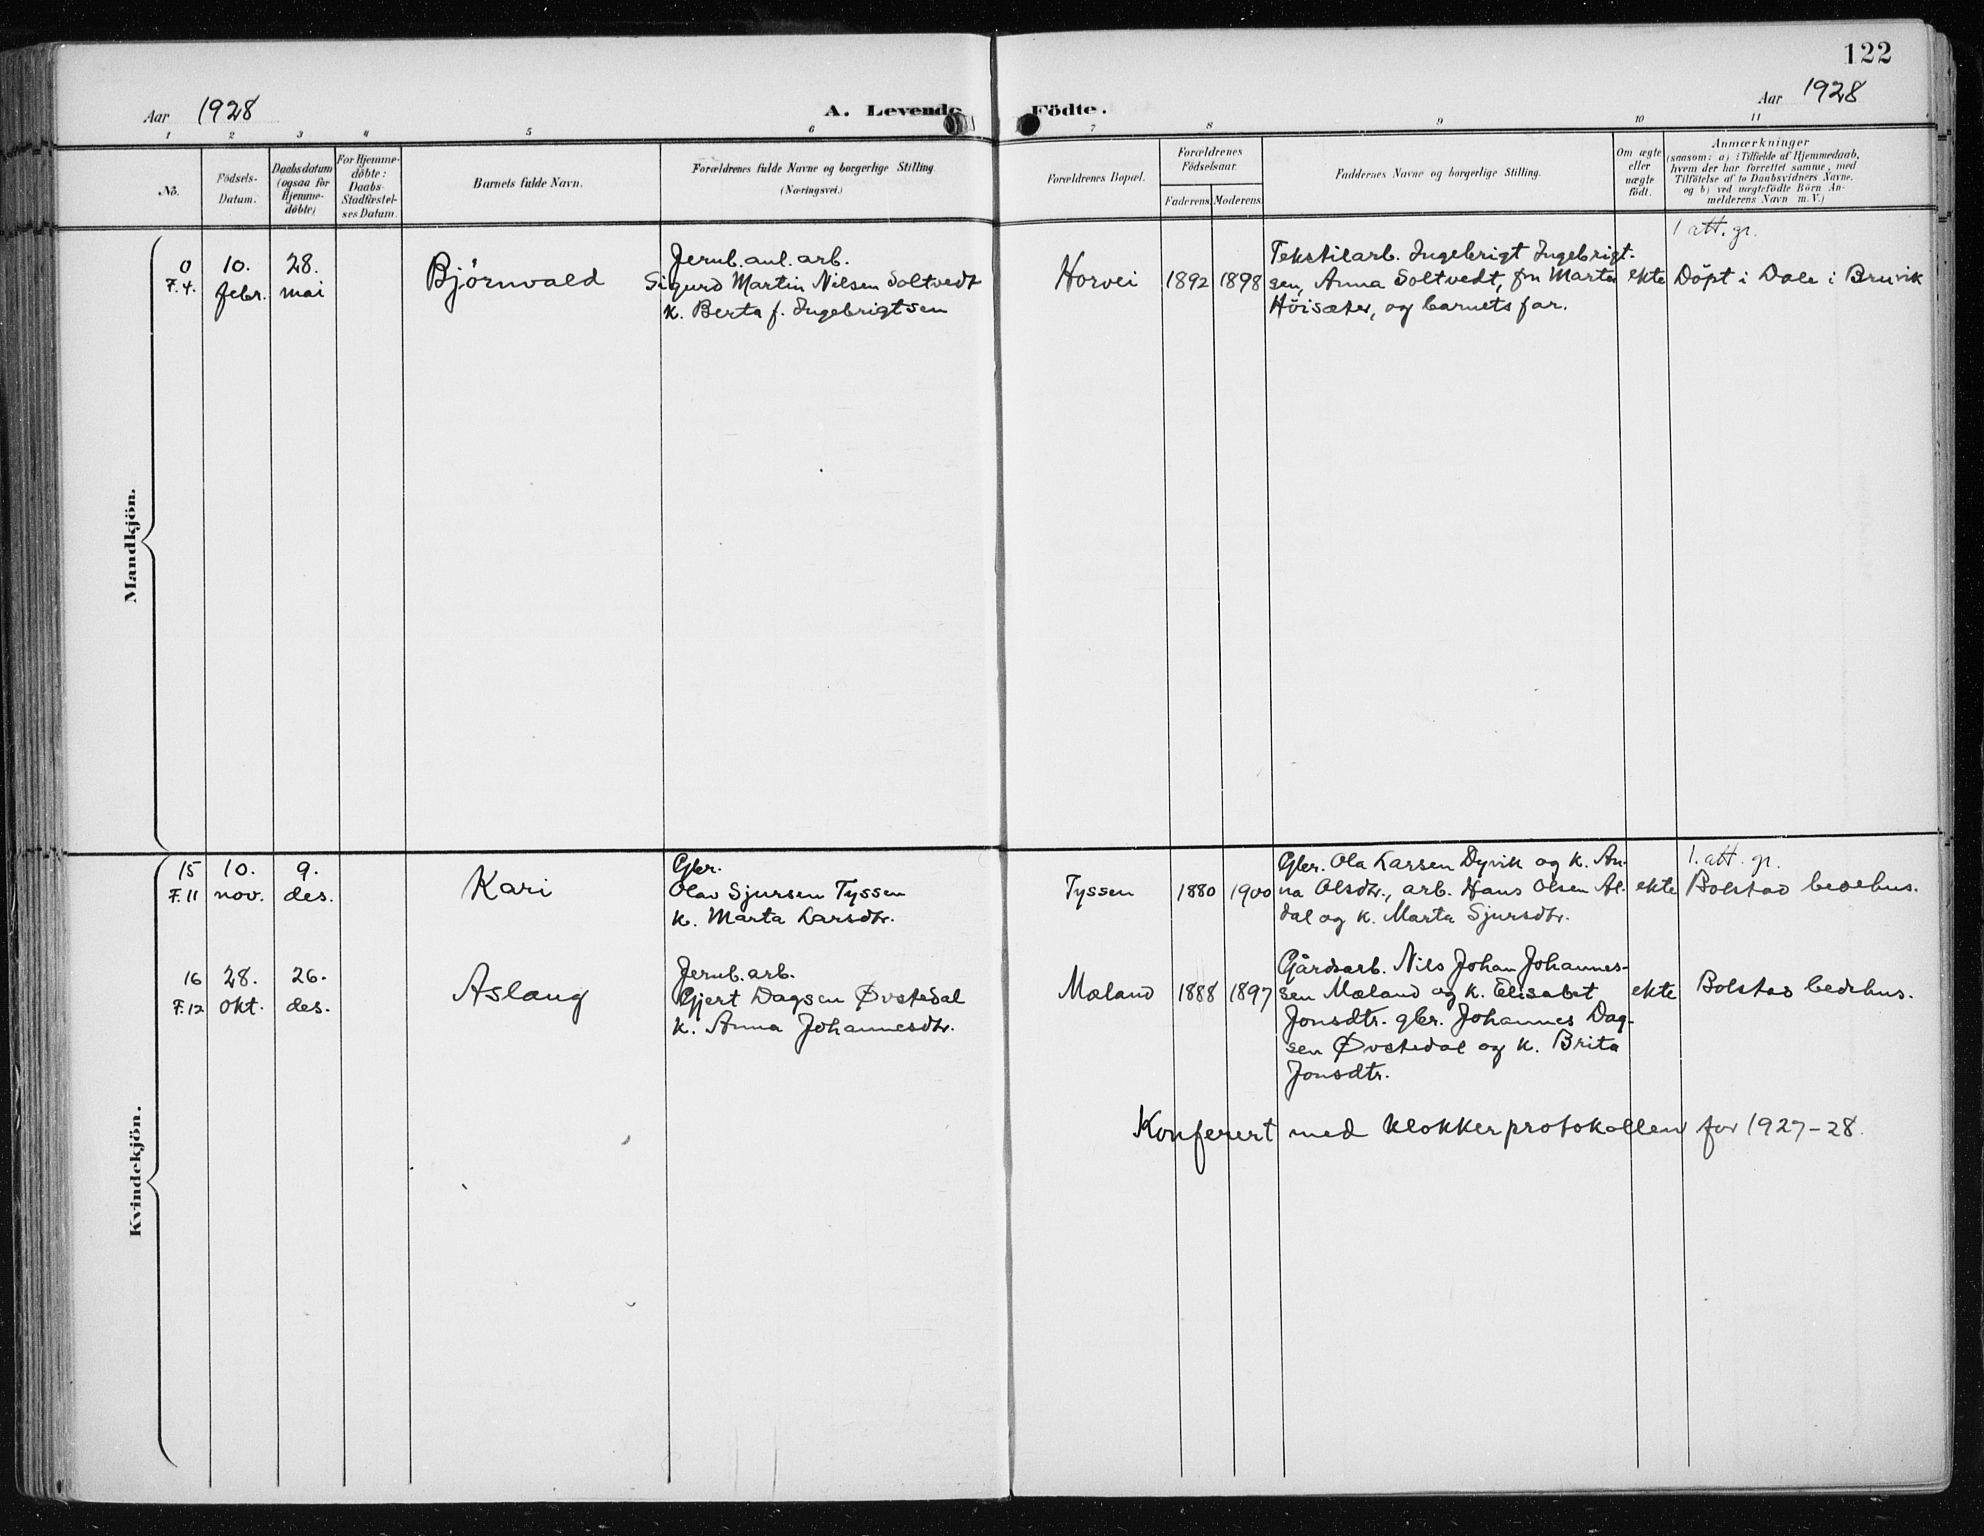 122
Aar 1928
A. Levende Födte.
Aar 1928
1 2 3 4 5 6 7 8 9 10 11
No.
Födsels-
Datum.
Daabsdatum
(ogsaa for
Hjemme-
döbte)
For Hjemme-
döbte:
Daabs-
Stadfæstel-
ses Datum.
Barnets fulde Navn.
Forældrenes fulde Navne og borgerlige Stilling.
(Næringsvei.)
Forældrenes Bopæl.
Forældrenes
Födselsaar.
Faderens. Moderens.
Faddernes Navne og borgerlige Stilling.
Om ægte
eller
uægte
födt.
Anmærkninger
(sansom: a) i Tilfælde af Hjemmedaab,
hvem der har forrettet samme, med
Tilföielse af to Daabsvidners Navne.
og b) ved uægtefödte Börn An-
melderens Navn m. V.)
Mandkjön.
0
F. 4.
10.
febr.
28.
mai
Bjørnvald
Jernb. anl. arb.
Sigurd Martin Nilsen Soltvedt
k. Berta f. Ingebrigtsen
Horvei
1892 1898
Tekstilarb. Ingebrigt Ingebrigt-
sen, Anna Soltvedt, fru Marta
Höisæter, og barnets far.
ekte
1 att. gr.
Döpt i Dale i Bruvik
Kvindekjön.
15
F. 11
10.
nov.
9.
des.
Kari
Gbr.
Olav Sjursen Tyssen
k. Marta Larsdtr.
Tyssen
1880 1900
Gbr. Ola Larsen Dyvik og k. An-
na Olsdtr., arb. Hans Olsen Al-
dal og k. Marta Sjursdtr.
ekte
1. att. gr.
Bolstad bedehus.
16
F. 12
28.
okt.
26.
des.
Aslaug
Jernb. arb.
Gjert Dagsen Øvstedal
k. Anna Johannesdtr.
Mæland
1888 1897
Gårdsarb. Nils Johan Johannes-
sen Mæland og k. Elisabet
Jonsdtr. gbr. Johannes Dag-
sen Øvstedal og k. Brita
Jonsdtr.
ekte
Bolstad bedehus.
Konferert med klokkerprotokollen for 1927-28.